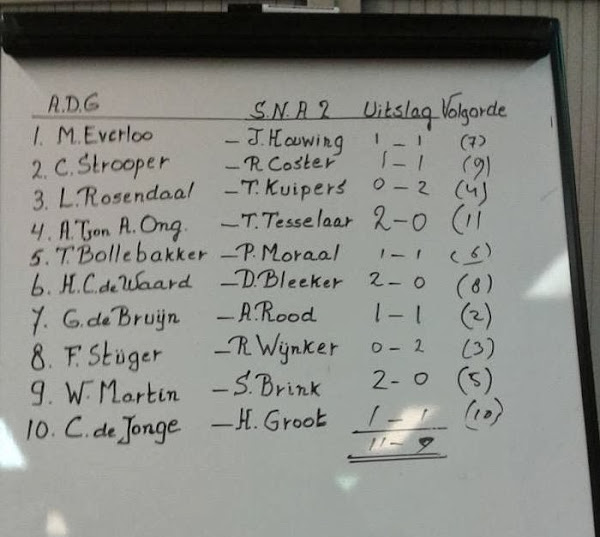 A.D.G S.N.A 2 Uitslag Volgorde
1. M. Everloo – J. Houwing 1 – 1 (7)
2. C. Strooper – R. Coster 1 – 1 (9)
3. L. Rosendaal – T. Kuipers 0 – 2 (4)
4. A. Tjon A. Ong. – T. Tesselaar 2 – 0 (1)
5. T. Bollebakker – P. Moraal 1 – 1 (6)
6. H.C. de Waard – D. Bleeker 2 – 0 (8)
7. G. de Bruijn – A. Rood 1 – 1 (2)
8. F. Stüger – R. Wijnker 0 – 2 (3)
9. W. Martin – S. Brink 2 – 0 (5)
10. C. de Jonge – H. Groot 1 – 1 (10)
11 – 9